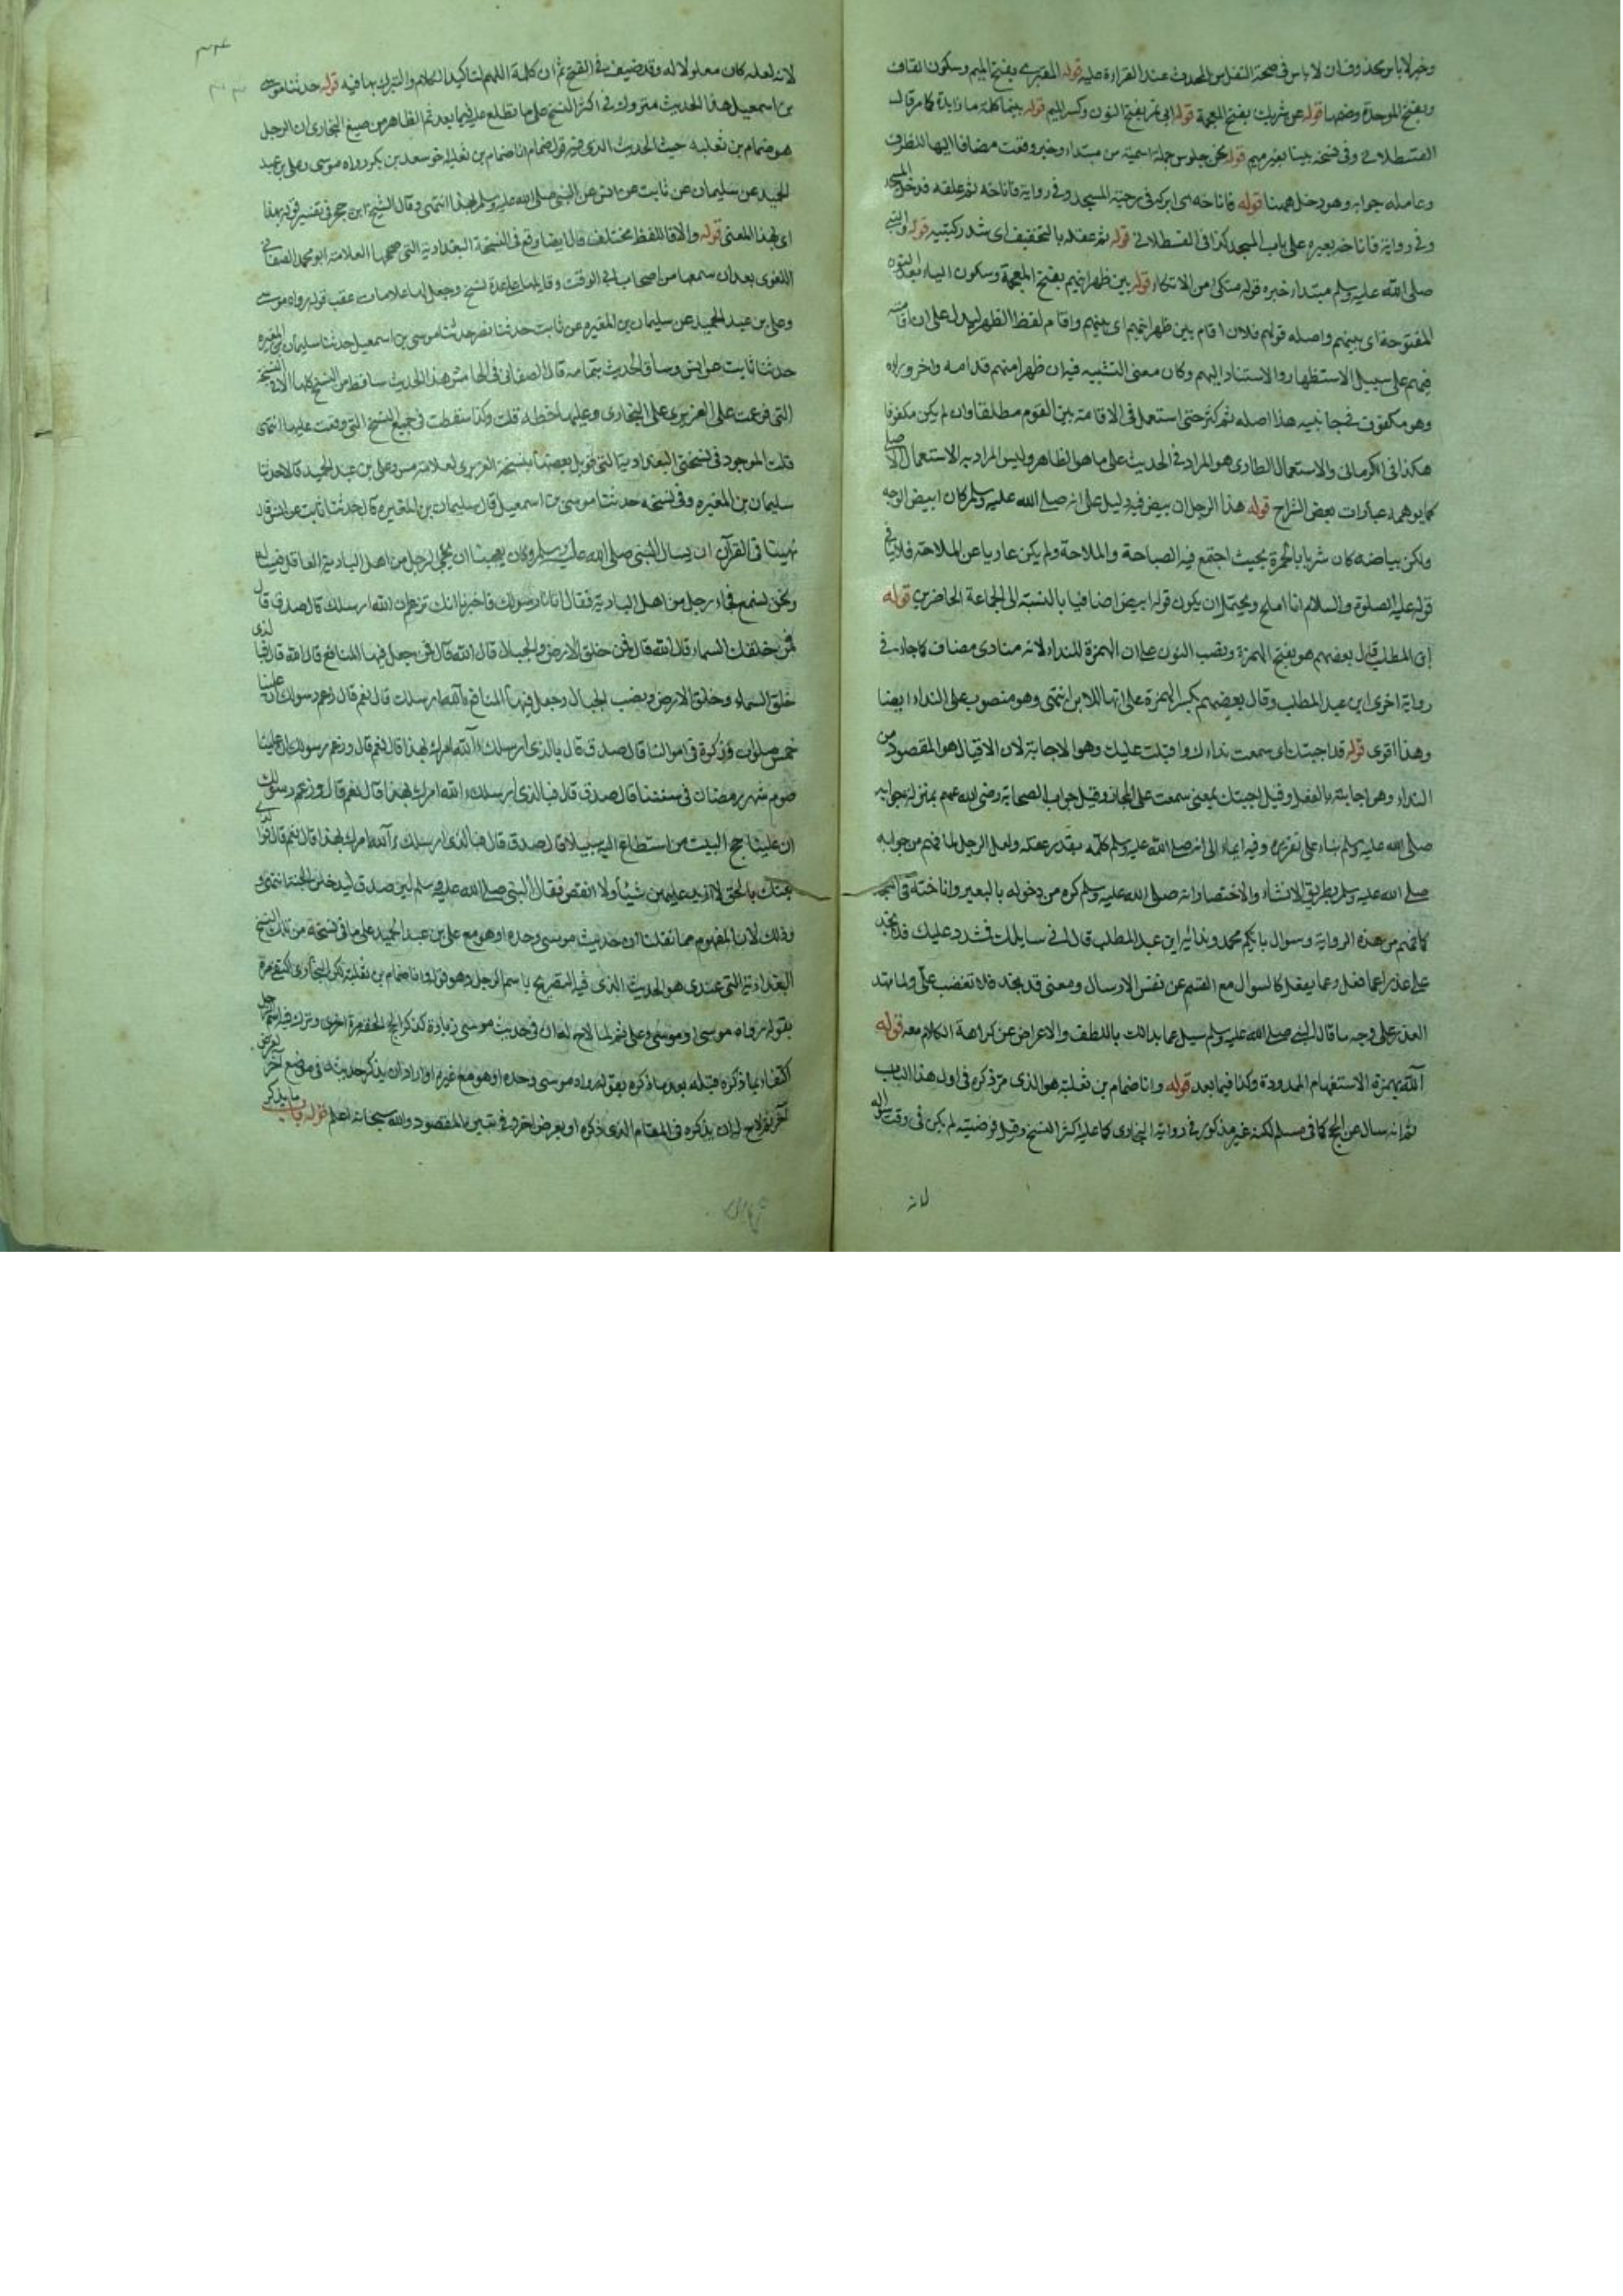 وخبر لا باس محذوف ان لا باس فى صحة النقل من المحدث عند القراءة عليه قوله المقبرى بفتح الميم وسكون القاف
وبفتح الموحدة وضمها قوله عن شريك بفتح المعجمة قوله ابى نمر بفتح النون وكسر الميم قوله بينما كلمة ما زايدة كما مر قال
القسطلانى وفى نسخة بينا بغير ميم قوله نحن جلوس جملة اسمية من مبتداء وخبر وقعت مضافا اليها للظرف
وعامله جوابه وهو دخل ههنا قوله فاناخه اى ابركه فى رحبة المسجد وفى رواية فاناخه ثم علقه فدخل المسجد
وفى رواية فاناخ بعيره على باب المسجد كذا فى القسطلانى قوله ثم عقله بالتخفيف اى شد ركبتيه قوله والنبى
صلى الله عليه وسلم مبتداء خبره قوله متكى من الاتكاء قوله بين ظهرانيهم بفتح المعجمة وسكون الهاء بعد النون
المفتوحة اى بينهم واصله قولهم فلان اقام بين ظهرانيهم اى بينهم واقام لفظ الظهر ليدل على ان اقامته
فيهم على سبيل الاستظهار والاستناد اليهم وكان معنى التشبيه فيه ان ظهرا منهم قدامه واخر وراءه
وهو مكفوف من جانبيه هذا اصله ثم كثر حتى استعمل فى الاقامة بين القوم مطلقا وان لم يكن مكفوفا
هكذا فى الكرمانى والاستعمال الطارى هو المراد فى الحديث على ما هو الظاهر وليس المراد به الاستعمال الاصلى
كما يوهمه عبارات بعض الشراح قوله هذا الرجل الابيض فيه دليل على انه صلى الله عليه وسلم كان ابيض الوجه
ولكن بياضه كان مشربا بالحمرة بحيث اجتمع فيه الصباحة والملاحة ولم يكن عاريا عن الملاحة فلا ينافى
قوله عليه الصلوة والسلام انا املح ويحتمل ان يكون قوله ابيض اضافيا بالنسبة الى الجماعة الحاضرين قوله
ابن المطلب قال بعضهم هو بفتح الهمزة ونصب النون على ان الهمزة للنداء لانه منادى مضاف كما جاء فى
رواية اخرى ابن عبد المطلب وقال بعضهم بكسر الهمزة على انها للابن انتهى وهو منصوب على النداء ايضا
وهذا اقوى قوله قد اجبتك اى سمعت نداءك واقبلت عليك وهو الاجابة لان الاقبال هو المقصود من
النداء وهى اجابته بالفعل وقيل اجبتك بمعنى سمعت على المجاز وقيل جواب الصحابة رضى الله عنهم بمنزلة جوابه
صلى الله عليه وسلم بناء على تقريره وفيه ايماء الى انه صلى الله عليه وسلم كلمه ولعل الرجل لما فهم من جوابه
صلى الله عليه وسلم بطريق الانشاء والاختصار انه صلى الله عليه وسلم كره من دخوله بالبعير واناخته فى المسجد
كما فهم من هذه الرواية وسوال بايكم محمد وندائه ابن عبد المطلب قال انى سايلك فمشدد عليك فلا تجد
على عذرا عما فعل وعما يفعل كالسوال مع القسم عن نفس الارسال ومعنى قد تجد فلا تغضب على ولما مهد
العذر على وجه ما قال النبى صلى الله عليه وسلم سل عما بدا لك باللطف والاعراض عن كراهة الكلام معه قوله
آلله بهمزة الاستفهام الممدودة وكذا فيما بعد قوله وانا ضمام بن ثعلبة هو الذى مر ذكره فى اول هذا الباب
ثم انه سال عن الحج كما فى مسلم لكنه غير مذكور فى رواية البخارى كما عليه اكثر النسخ وقيل فرضيته لم يكن فى وقت سواله
لانه
٣٣٤
لانه لعله كان معلوما له وقد ضعف فى الفتح ثم ان كلمة اللهم لتاكيد الكلام والتبرك بها فيه قوله حدثنا موسى
بن اسمعيل هذا الحديث متروك فى اكثر النسخ على ما تطلع عليه فيما بعد ثم الظاهر من صيغ البخارى ان الرجل
هو ضمام بن ثعلبة حيث الحديث الذى فيه قول ضمام انا ضمام بن ثعلبة اخو سعد بن بكر رواه موسى وعلى بن عبد
الحميد عن سليمان عن ثابت عن انس عن النبى صلى الله عليه وسلم بهذا انتهى وقال الشيخ ابن حجر فى تفسير قوله بهذا
اى بهذا المعنى قوله والا فاللفظ مختلف قال ايضا وقع فى النسخة البغدادية التى صححها العلامة ابو محمد الصغانى
اللغوى بعد ان سمعها من اصحاب ابى الوقت وقابلها على عدة نسخ وجعل لها علامات عقب قوله رواه موسى
وعلى بن عبد الحميد عن سليمان بن المغيره عن ثابت حدثنا موسى بن اسمعيل حدثنا سليمان بن المغيره
حدثنا ثابت عن انس وساق الحديث بتمامه قال الصغانى فى الهامش هذا الحديث ساقط من النسخ كلها الا فى النسخة
التى قرءت على الفربرى على البخارى وعليها خطه قلت وكذا سقطت فى جميع النسخ التى وقعت عليها انتهى
قلت الموجود فى نسختى البغدادية التى قوبل بعضها بنسخة الفربرى لعلامة موسى وعلى بن عبد الحميد قالا حدثنا
سليمان بن المغيره وفى نسخة حدثنا موسى بن اسمعيل قال سليمان بن المغيره قال حدثنا ثابت عن انس قال
نهينا فى القرآن ان يسال النبى صلى الله عليه وسلم وكان يعجبنا ان يجى الرجل من اهل البادية العاقل فيساله
ونحن نسمع فجاء رجل من اهل البادية فقال اتانا رسولك فاخبرنا انك تزعم ان الله ارسلك قال صدق قال
فمن خلق السماء قال الله قال فمن خلق الارض والجبال قال الله قال فمن جعل فيها المنافع قال الله قال فبالذى
خلق السماء وخلق الارض ونصب الجبال وجعل فيها المنافع آلله ارسلك قال نعم قال زعم رسولك ان علينا
خمس صلوات وزكوة فى اموالنا قال صدق قال بالذى ارسلك آلله امرك بهذا قال نعم قال وزعم رسولك ان علينا
صوم شهر رمضان فى سنتنا قال صدق قال فبالذى ارسلك آلله امرك بهذا قال نعم قال وزعم رسولك
ان علينا حج البيت من استطاع اليه سبيلا قال صدق قال فبالذى ارسلك آلله امرك بهذا قال نعم قال فوالذى
بعثك بالحق لا ازيد عليهن شيئا ولا انقص فقال النبى صلى الله عليه وسلم لين صدق ليدخلن الجنة انتهى
وذلك لان المفهوم مما نقلنا ان حديث موسى وحده او هو مع على بن عبد الحميد على ما فى نسخة من تلك النسخ
البغدادية التى عندى هو الحديث الذى فيه التصريح باسم الرجل وهو قوله وانا ضمام بن ثعلبة لكن البخارى اكتفى مرة
بقوله رواه موسى او موسى وعلى ثم لما لاح له ان فى حديث موسى زيادة كذكر الحج اخرى وترك فيه اسم الرجل
اكتفاء بما ذكره قبله بعد ما ذكره بقوله رواه موسى وحده او هو مع غيره او اراد ان يذكر حديثه فى موضع آخر لغرض
آخر ثم لاح له ان يذكره فى المقام الذى ذكره او لغرض آخر والله سبحانه اعلم قوله باب ما يذكر